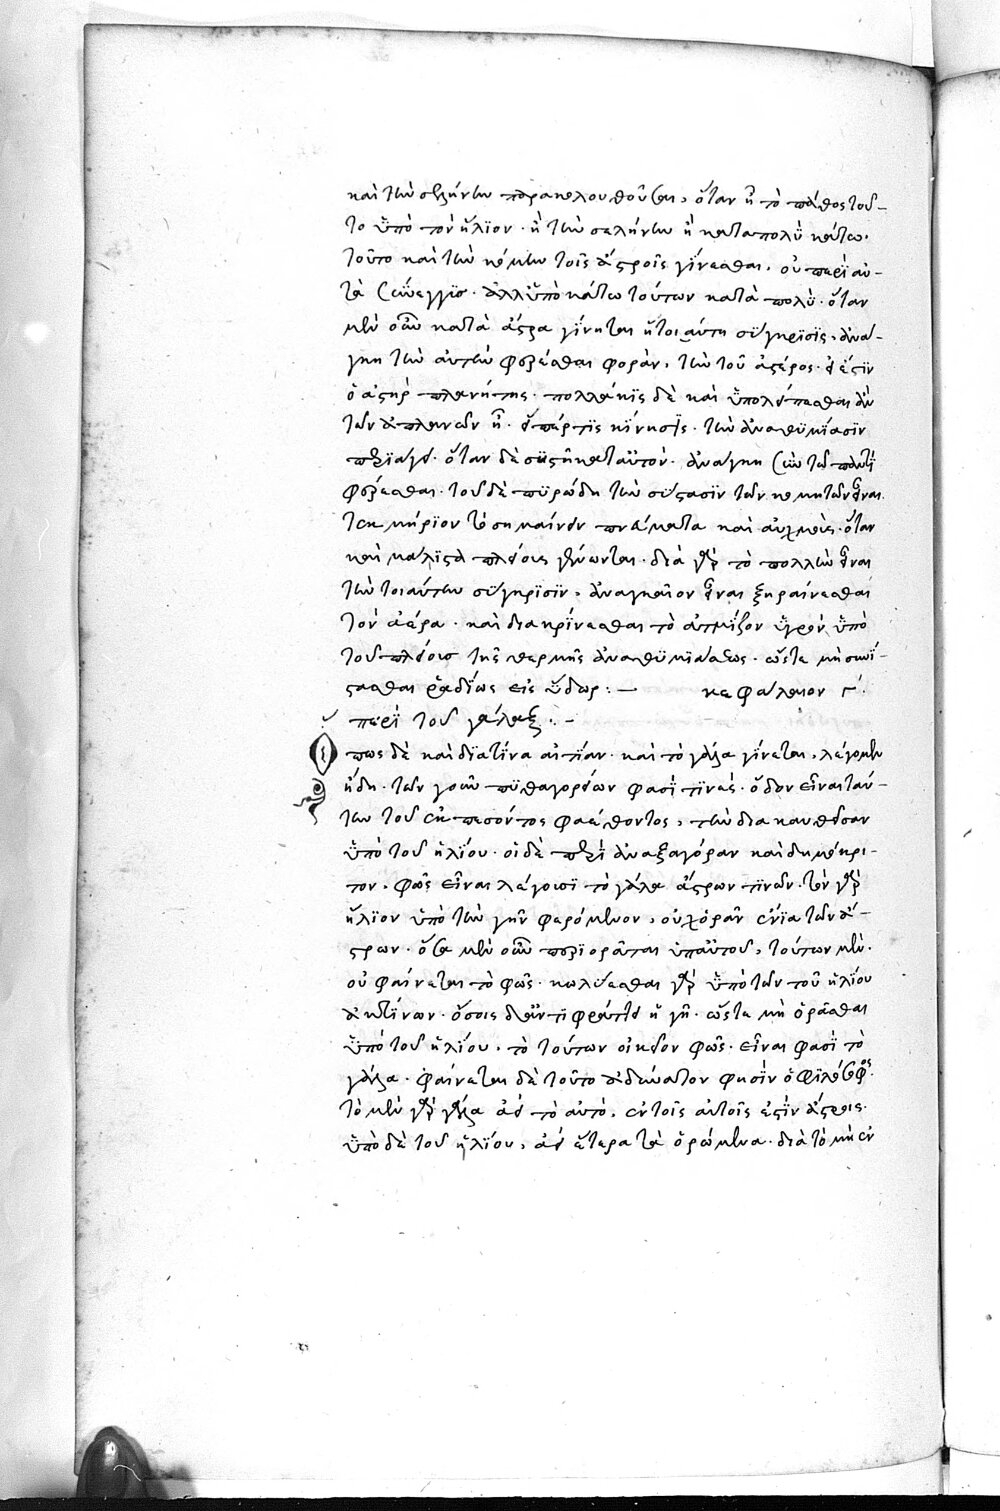 καὶ τὴν σελήνην παρακολουθοῦσαν, ὅταν ᾖ τὸ πάθος τοῦ-
το ὑπὸ τὸν ἥλιον· ἢ τὴν σελήνην ἢ καταπολὺ κάτω·
τοῦτο καὶ τὴν κόμην τοῖς ἄστροις γίνεσθαι, οὐ περὶ αὐ-
τὰ σύνεγγυς· ἀλλ' ὑπὸ κάτω τούτων κατὰ πολὺ· ὅταν
μὲν οὖν κατὰ ἄστρα γίνηται ἡ τοιαύτη σύγκρισις, ἀνά-
γκη τὴν αὐτὴν φέρεσθαι φορὰν, τὴν τοῦ ἀστέρος· εἰ ἐστὶν
ὁ ἀστὴρ πλανήτης· πολλάκις δὲ καὶ ὑπολείπεσθαι ἂν
τῶν ἀπλανῶν ᾖ· εἴπερ τις κίνησις, τὴν ἀναθυμίασιν
περιάγει· ὅταν δὲ συστῇ καθ' αὑτὸν· ἀνάγκη σὺν τῷ παντὶ
φέρεσθαι· τοῦ δὲ πυρώδη τὴν σύστασιν τῶν κομητῶν εἶναι
τεκμήριον τὸ σημαίνειν πνεύματα καὶ αὐχμοὺς· ὅταν
καὶ μάλιστα πλείους γένωνται· διὰ γὰρ τὸ πολλὴν εἶναι
τὴν τοιαύτην σύγκρισιν, ἀναγκαῖον εἶναι ξηραίνεσθαι
τὸν ἀέρα· καὶ διακρίνεσθαι τὸ ἀτμίζον ὑγρὸν ὑπὸ
τοῦ πλείους τῆς θερμῆς ἀναθυμιάσεως· ὥστε μὴ συνί-
στασθαι ῥᾳδίως εἰς ὕδωρ:— κεφάλαιον γ´.
περὶ τοῦ γάλαξ:-
Ὅπως δὲ καὶ διὰ τίνα αἰτίαν· καὶ τὸ γάλα γίνεται, λέγομεν
ἤδη· τῶν γοῦν πυθαγορείων φασί τινές· ὁδὸν εἶναι ταύ-
την τοῦ ἐκπεσόντος φαέθοντος, τὴν διακαυθεῖσαν
ὑπὸ τοῦ ἡλίου· οἱ δὲ περὶ ἀναξαγόραν καὶ δημόκρι-
τον, φῶς εἶναι λέγουσι τὸ γάλα ἄστρων τινῶν· τὸν γὰρ
ἥλιον ὑπὸ τὴν γῆν φερόμενον, οὐχ ὁρᾶν ἔνια τῶν ἄ-
στρων· ὅσα μὲν οὖν περιορᾶται ὑπ' αὐτοῦ, τούτων μὲν
οὐ φαίνεται τὸ φῶς· κωλύεσθαι γὰρ ὑπὸ τῶν τοῦ ἡλίου
ἀκτίνων· ὅσοις δὲ ἀντιφράττει ἡ γῆ· ὥστε μὴ ὁρᾶσθαι
ὑπὸ τοῦ ἡλίου, τὸ τούτων οἰκεῖον φῶς· εἶναι φασὶ τὸ
γάλα· φαίνεται δὲ τοῦτο ἀδύνατον φησὶν ὁ φιλόσοφος·
τὸ μὲν γὰρ γάλα ἀεὶ τὸ αὐτὸ, ἐν τοῖς αὐτοῖς ἐστὶν ἄστροις·
ὑπὸ δὲ τοῦ ἡλίου, ἀεὶ ἕτερα τὰ ὁρώμενα· διὰ τὸ μὴ ἐν